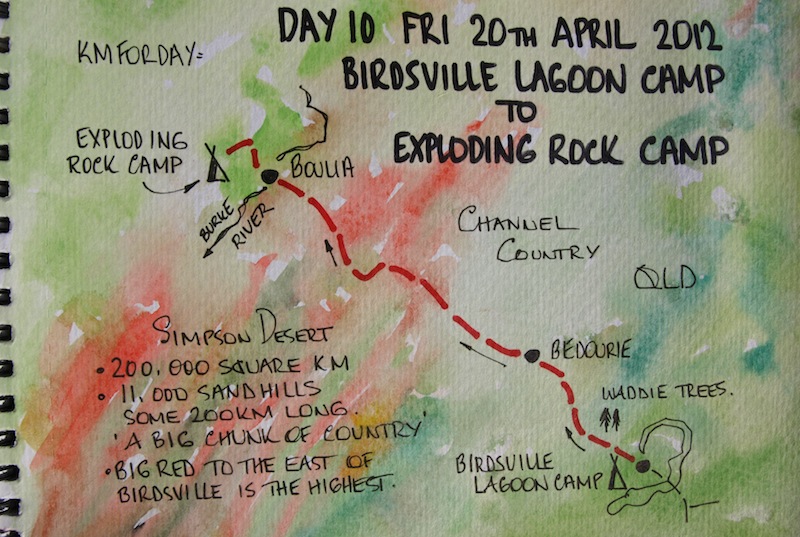 DAY 10 FRI 20TH APRIL 2012
BIRDSVILLE LAGOON CAMP
TO
EXPLODING ROCK CAMP
KM FOR DAY=
EXPLODING
ROCK CAMP
BOULIA
BURKE
RIVER
CHANNEL
COUNTRY
QLD
BEDOURIE
WADDIE TREES.
BIRDSVILLE
LAGOON CAMP
SIMPSON DESERT
• 200,000 SQUARE KM
• 11,000 SANDHILLS
SOME 200KM LONG.
'A BIG CHUNK OF COUNTRY'
• BIG RED TO THE EAST OF
BIRDSVILLE IS THE HIGHEST.